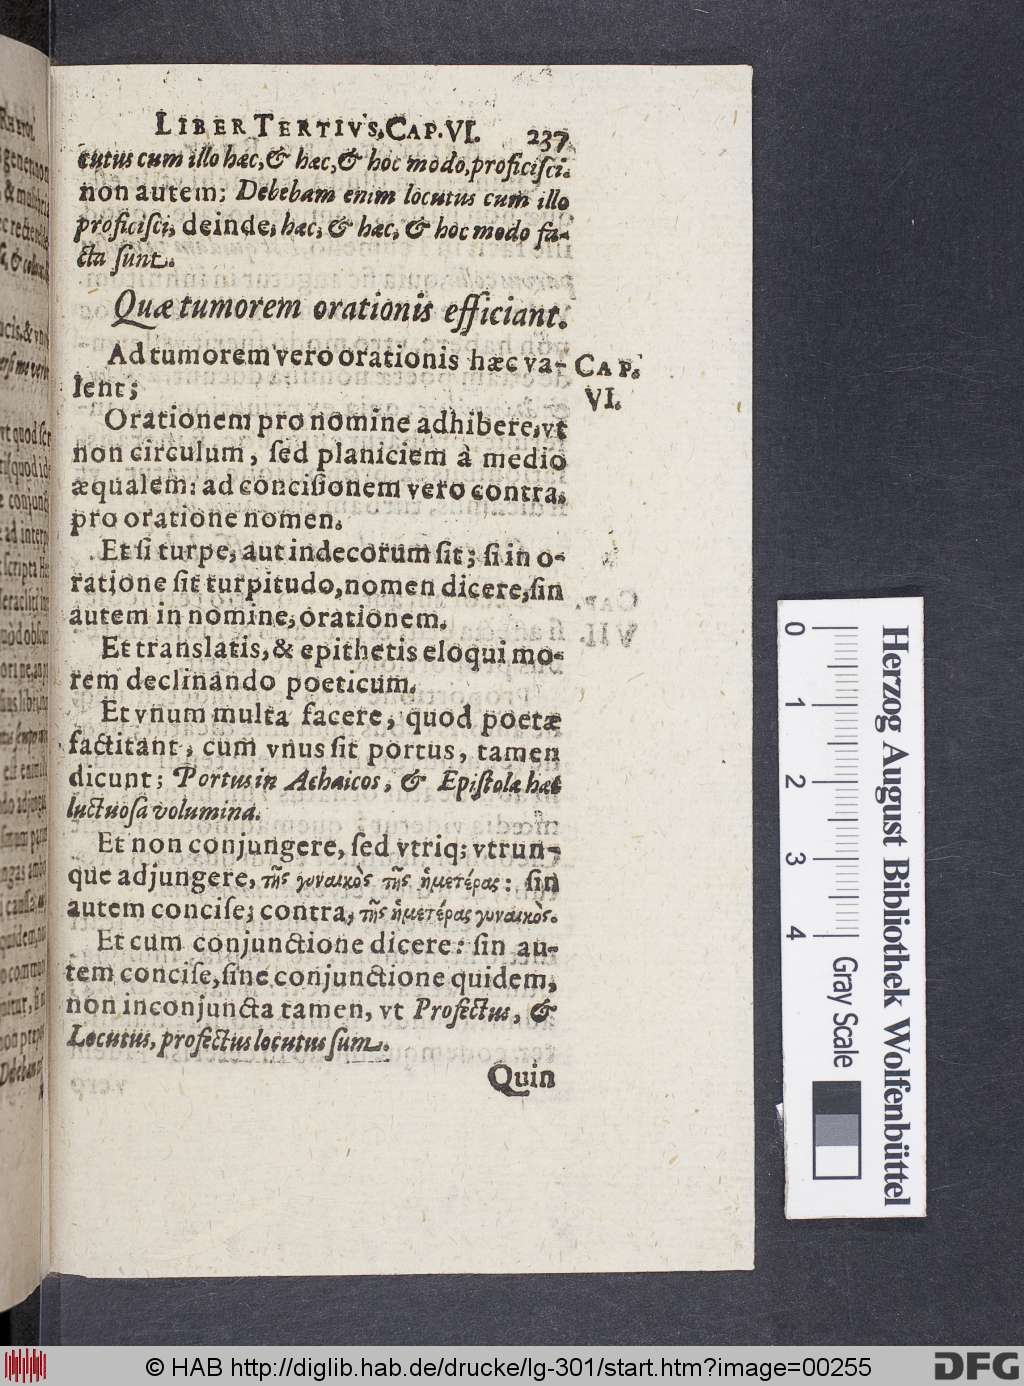 LIBER TERTIVS, CAP. VI. 237
cutus cum illo hæc, & hæc, & hoc modo, proficiſci.
non autem; Debebam enim locutus cum illo
proficiſci, deinde, hæc, & hæc, & hoc modo fa-
cta ſunt.
Quæ tumorem orationis efficiant.
Ad tumorem vero orationis hæc va-
lent;
CAP.
VI.
Orationem pro nomine adhibere, vt
non circulum, ſed planiciem à medio
æqualem: ad conciſionem vero contra,
pro oratione nomen.
Et ſi turpe, aut indecorum ſit; ſi in o-
ratione ſit turpitudo, nomen dicere, ſin
autem in nomine, orationem.
Et translatis, & epithetis eloqui mo-
rem declinando poeticum.
Et vnum multa facere, quod poetæ
factitant, cum vnus ſit portus, tamen
dicunt; Portus in Achaicos, & Epiſtolæ hæc
luctuoſa volumina.
Et non conjungere, ſed vtriq; vtrun-
que adjungere, τῆς γυναικὸς τῆς ἡμετέρας: ſin
autem conciſe; contra, τῆς ἡμετέρας γυναικὸς.
Et cum conjunctione dicere: ſin au-
tem conciſe, ſine conjunctione quidem,
non inconjuncta tamen, vt Profectus, &
Locutus, profectus locutus ſum.
Quin
0 1 2 3 4
Gray Scale
Herzog August Bibliothek Wolfenbüttel
© HAB http://diglib.hab.de/drucke/lg-301/start.htm?image=00255
DFG